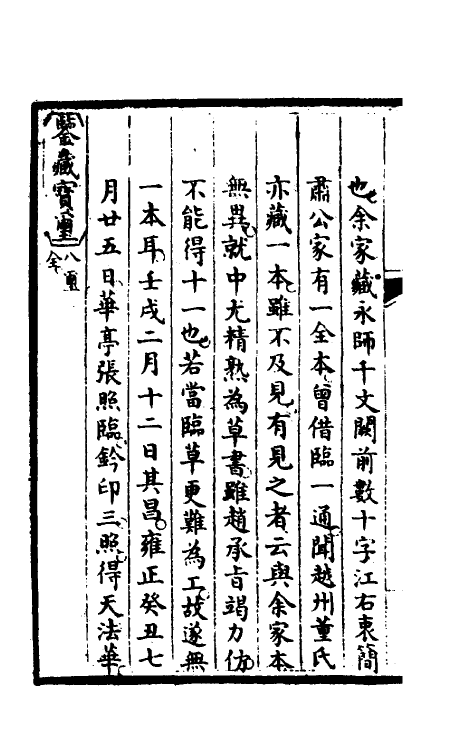 也余家藏永師千文闕前數十字江右衷簡
肅公家有一全本曾借臨一通聞越州董氏
亦藏一本雖不及見有見之者云與余家本
無異就中尤精熟為草書雖趙承旨竭力仿
不能得十一也若當臨草更難為工故遂無
一本耳壬戌二月十二日其昌雍正癸丑七
月廿五日華亭張照臨鈐印三照得天法華
鑒藏寶璽
八璽
全